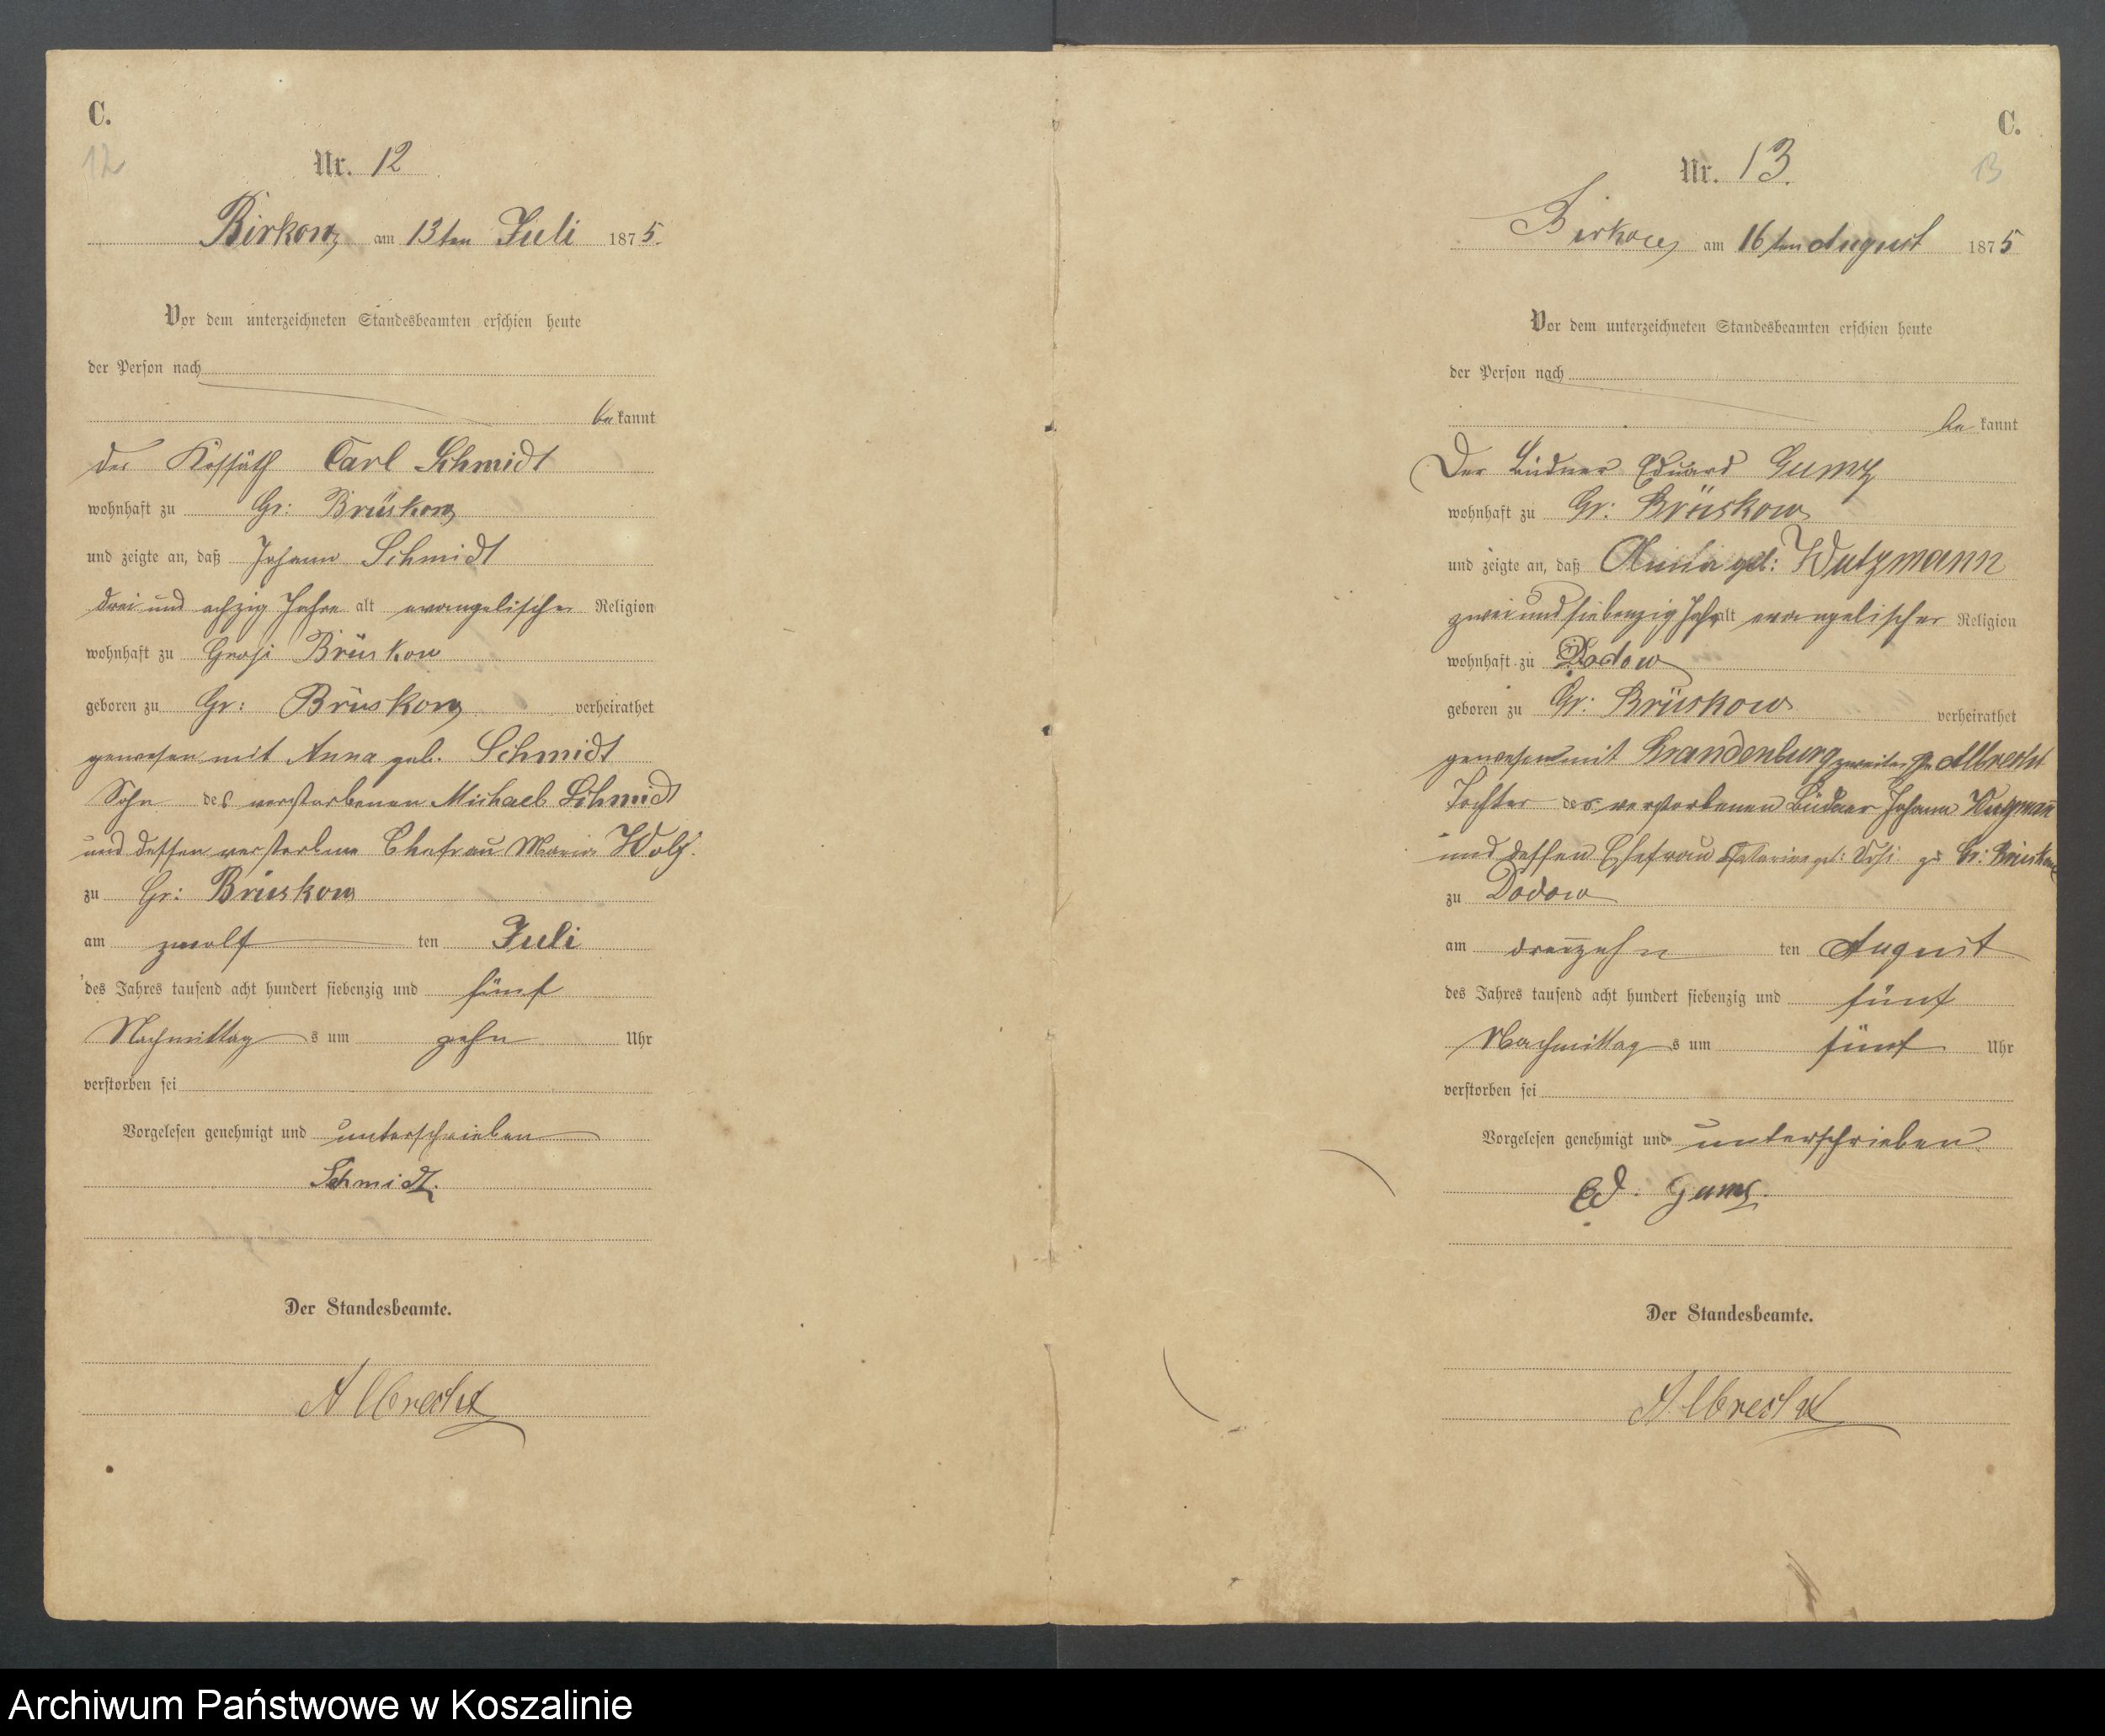 C.
12
Nr. 12
Birkow am 13ten Juli 1875.
Vor dem unterzeichneten Standesbeamten erschien heute
der Person nach
bekannt
der Kossäth Carl Schmidt
wohnhaft zu Gr: Brüskow
und zeigte an, daß Johann Schmidt
drei und achzig Jahre alt evangelischer Religion
wohnhaft zu Groß Brüskow
geboren zu Gr: Brüskow verheirathet
gewesen mit Anna geb. Schmidt
Sohn des verstorbenen Michael Schmidt
und dessen verstorbene Ehefrau Maria
zu Gr: Brüskow
am zwolf ten Juli
des Jahres tausend acht hundert siebenzig und fünf
Nachmittag s um zehn Uhr
verstorben sei
Vorgelesen genehmigt und unterschrieben
Schmidt.
Der Standesbeamte.
Albrecht
C.
13
Nr. 13.
Birkow am 16ten August 1875
Vor dem unterzeichneten Standesbeamten erschien heute
der Person nach
bekannt
Der Büdner Eduard Gumz
wohnhaft zu Gr: Brüskow
und zeigte an, daß geb: Wutzmann
zwei und siebenzig Jahr alt evangelischer Religion
wohnhaft zu Dodow
geboren zu Gr: Brüskow verheirathet
gewesen mit Brandenburg zweiter Albrecht
Tochter des verstorbenen Büdner Johann Wutzmann
und dessen Ehefrau geb: zu Gr: Brüskow
zu Dodow
am dreizehn ten August
des Jahres tausend acht hundert siebenzig und fünf
Nachmittag s um fünf Uhr
verstorben sei
Vorgelesen genehmigt und unterschrieben
Ed. Gumz.
Der Standesbeamte.
Albrecht
Archiwum Państwowe w Koszalinie